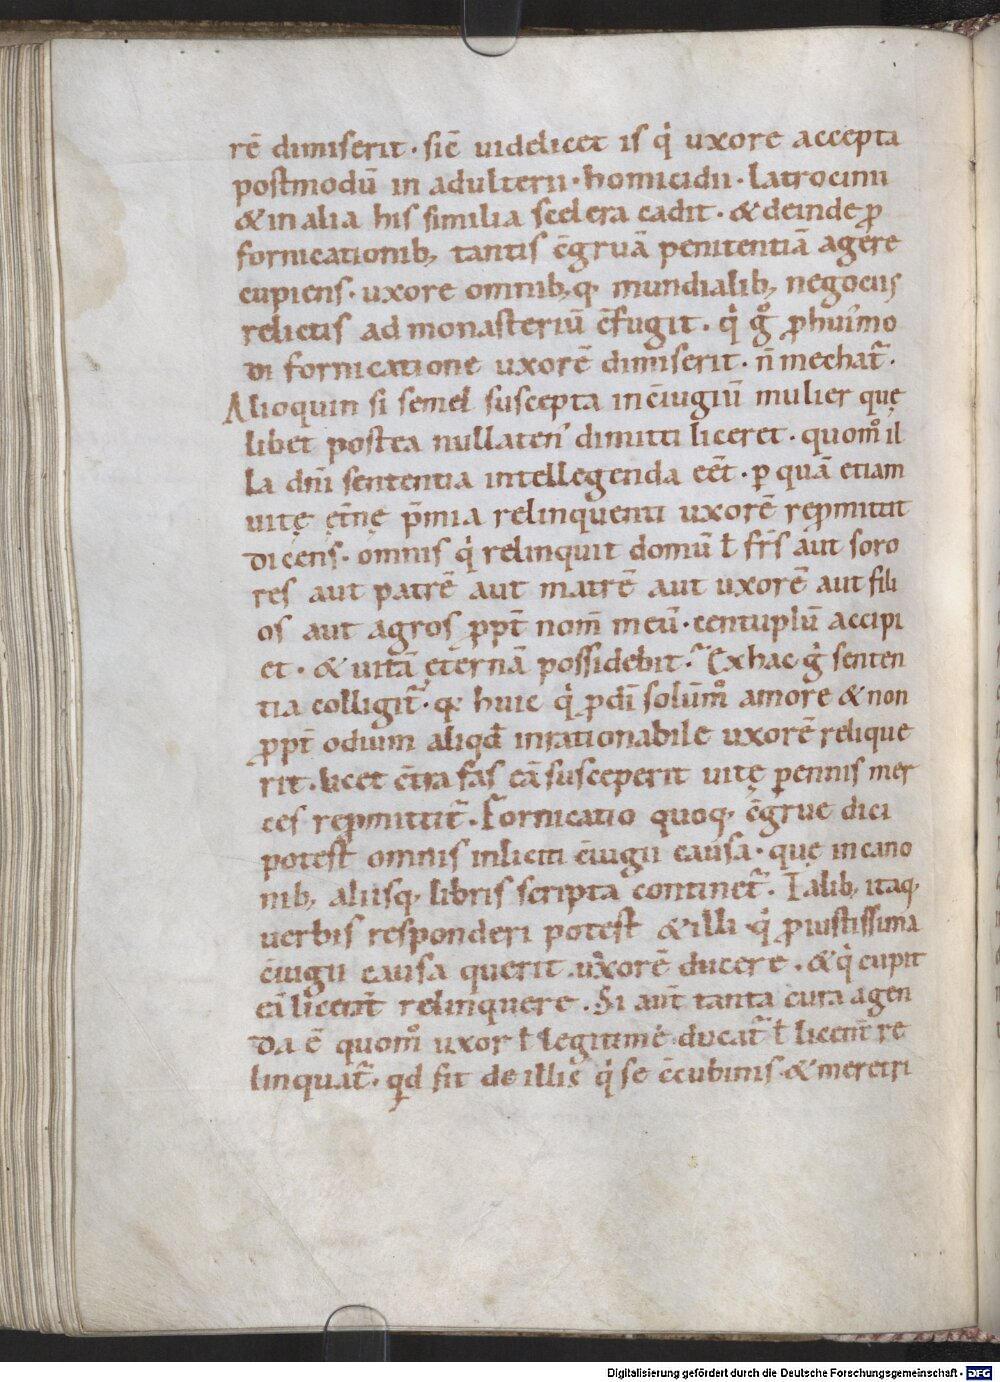 rē dimiserit · sic̄ uidelicet is q̍ uxore accepta
postmodū in adulterii · homicidii · latrocinii
& in alia his similia scelera cadit · & deinde ꝓ
fornicationib; tantis c̄gruā penitentiā agere
cupiens · uxore omnib;q; mundialib; negociis
relictis ad monasteriū c̄fugit · q̍ gͦ ꝓ huiꝰmo
di fornicatione uxorē dimiserit · n̄ mechat̄ ·
Alioquin si semel suscepta in c̄iugiū mulier quę
libet postea nullaten᾽ dimitti liceret · quom̊ il
la dn̄i sententia intellegenda eēt · ꝑ quā etiam
uitę ęt̄nę p̄mia relinquenti uxorē reꝓmittit
dicens · omnis q̍ relinquit domū ł fr̄s aut soro
res aut patrē aut matrē aut uxorē aut fili
os aut agros ꝓpt̄ nom̄ meū · centuplū accipi
et · & uitā ęternā possidebit · Ex hac g̍ senten
tia colligit̄ · q; huic q̍ ꝓ dī solūm̊ amore & non
ꝓpt̄ odium aliqd̄ inrationabile uxorē relique
rit · licet c̄tra fas eā susceperit uitę ꝑennis mer
ces reꝓmittit̄ · Fornicatio quoq; c̄grue dici
potest omnis inliciti c̄iugii causa · quę in cano
nib; aliisq; libris scripta continet̄ · Talib; itaq;
uerbis responderi potest & illi · q̍ ꝓ iustissima
c̄iugii causa querit uxorē ducere · & q̍ cupit
eā licent̄ relinquere · Si aut̄ tanta cura agen
da ē quom̊ uxor ł legitime ducat̄ ł licent̄ re
linquat̄ · qd̄ fit de illis q̍ se c̄cubinis · & meretri
Digitalisierung gefördert durch die Deutsche Forschungsgemeinschaft - DFG